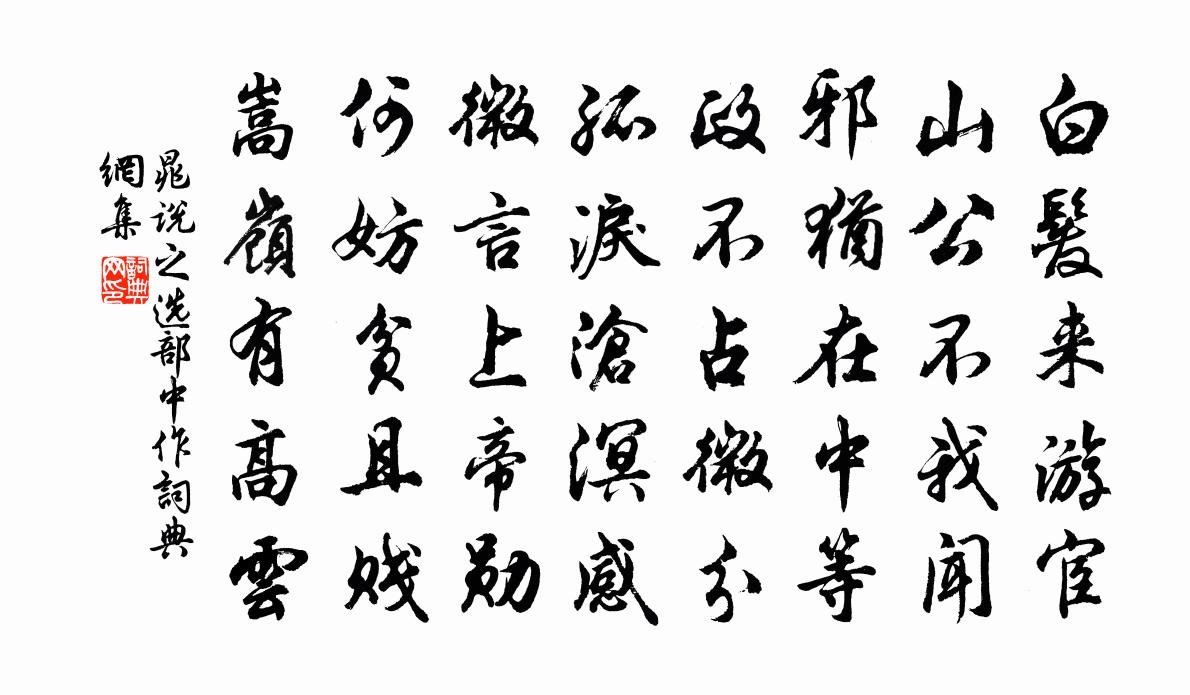 白髮来游宦
山公不我聞
邪猶在中等
政不占微分
孤淚滄溟感
微言上帝勋
何妨贫且贱
嵩嶺有高雲
晁说之选部中作詞典
網集
詞典网印